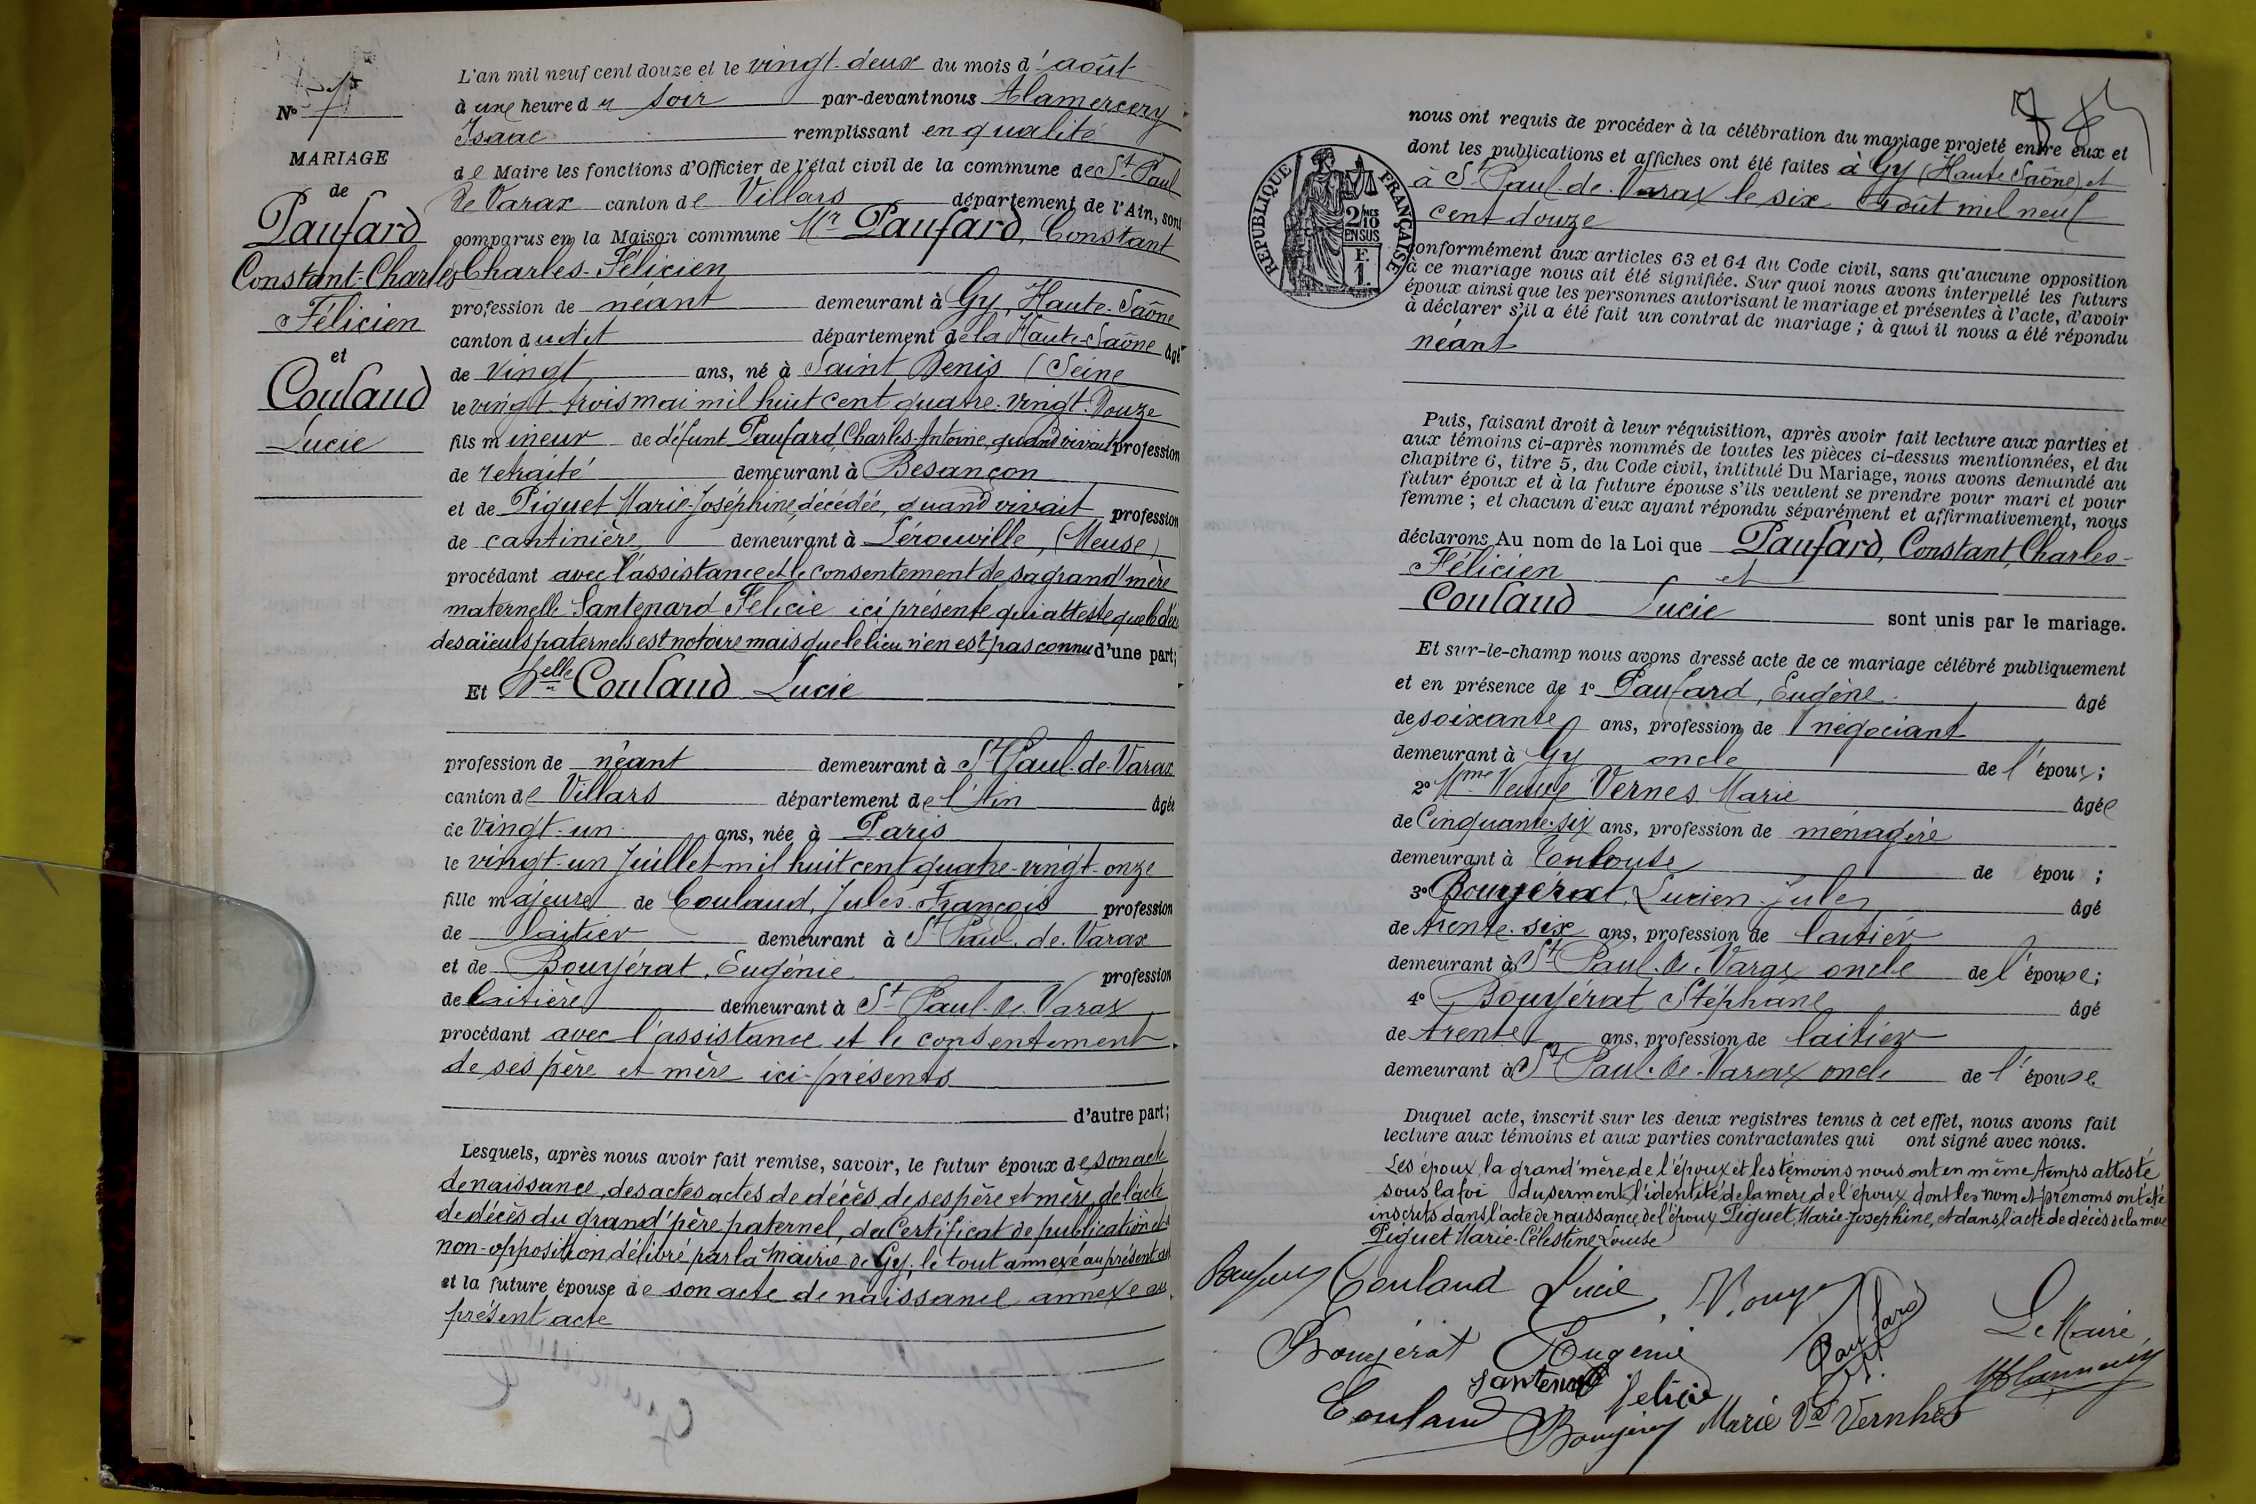 L'an mil neuf cent douze et le vingt-deux du mois d'août
à une heure du soir par-devant nous Alamercery
Isaac remplissant en qualité
de Maire les fonctions d'Officier de l'état civil de la commune de St Paul
de Varax canton de Villars département de l'Ain, sont
comparus en la Maison commune Mr Paufard, Constant
Charles-Félicien
profession de néant demeurant à Gy, Haute-Saône
canton dudit département de la Haute-Saône âgé
de vingt ans, né à Saint Denis (Seine
le vingt-trois mai mil huit cent quatre-vingt-douze
fils mineur de défunt Paufard, Charles-Antoine, quand vivait profession
de retraité demeurant à Besançon
et de Piguet Marie-Joséphine, décédée, quand vivait profession
de cantinière demeurant à Lérouville, (Meuse)
procédant avec l'assistance et le consentement de sa grand'mère
maternelle Santenard Félicie ici présente qui atteste que le décès
des aïeuls paternels est notoire mais que le lieu n'en est pas connu d'une part;
Et Delle Coulaud Lucie
profession de néant demeurant à St Paul-de-Varax
canton de Villars département de l'Ain âgée
de vingt-un ans, née à Paris
le vingt-un Juillet mil huit cent quatre-vingt-onze
fille majeure de Coulaud, Jules-François profession
de laitier demeurant à St Paul-de-Varax
et de Bouyérat, Eugénie profession
de laitière demeurant à St Paul-de-Varax
procédant avec l'assistance et le consentement
de ses père et mère ici-présents
d'autre part;
Lesquels, après nous avoir fait remise, savoir, le futur époux de son acte
de naissance, des actes actes de décès de ses père et mère, de l'acte
de décès du grand'père paternel, du Certificat de publication et
non-opposition délibré par la mairie de Gy, le tout annexé au présent acte
et la future épouse de son acte de naissance annexé au
présent acte
N° 7
MARIAGE
de
Paufard
Constant-Charles
Félicien
et
Coulaud
Lucie
nous ont requis de procéder à la célébration du mariage projeté entre eux et
dont les publications et affiches ont été faites à Gy (Haute Saône) et
à St Paul-de-Varax le six Août mil neuf
cent douze
RÉPUBLIQUE FRANÇAISE
2/10MES
EN SUS
F.
1.
conformément aux articles 63 et 64 du Code civil, sans qu'aucune opposition
à ce mariage nous ait été signifiée. Sur quoi nous avons interpellé les futurs
époux ainsi que les personnes autorisant le mariage et présentes à l'acte, d'avoir
à déclarer s'il a été fait un contrat de mariage ; à quoi il nous a été répondu
néant
Puis, faisant droit à leur réquisition, après avoir fait lecture aux parties et
aux témoins ci-après nommés de toutes les pièces ci-dessus mentionnées, et du
chapitre 6, titre 5, du Code civil, intitulé Du Mariage, nous avons demandé au
futur époux et à la future épouse s'ils veulent se prendre pour mari et pour
femme ; et chacun d'eux ayant répondu séparément et affirmativement, nous
déclarons Au nom de la Loi que Paufard, Constant, Charles-
Félicien et
Coulaud Lucie sont unis par le mariage.
Et sur-le-champ nous avons dressé acte de ce mariage célébré publiquement
et en présence de 1° Paufard, Eugène âgé
de soixante ans, profession de négociant
demeurant à Gy oncle de l'époux;
2° Mme Veuve Vernes Marie âgée
de Cinquante-six ans, profession de ménagère
demeurant à Toulouse de épou ;
3° Bouyérat, Lucien-Jules âgé
de trente-six ans, profession de laitier
demeurant à St Paul-de-Varax oncle de l'épouse;
4° Bouyérat Stéphane âgé
de trente ans, profession de laitier
demeurant à St Paul-de-Varax oncle de l'épouse
Duquel acte, inscrit sur les deux registres tenus à cet effet, nous avons fait
lecture aux témoins et aux parties contractantes qui ont signé avec nous.
Les époux, la grand'mère de l'époux et les témoins nous ont en même temps attesté
sous la foi du serment l'identité de la mère de l'époux dont les nom et prénoms ont été
inscrits dans l'acte de naissance de l'époux Piguet, Marie-Joséphine, et dans l'acte de décès de la mère
Piguet Marie-Célestine Louise
Coulaud Lucie
Bouyérat Eugénie Paufard Le Maire
Santenard Félicie
Coulaud Marie Vve Vernhes